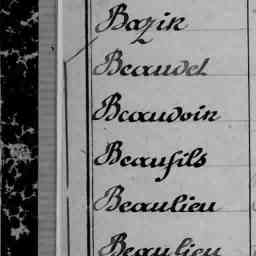 Bazin
Beaudet
Beaudoin
Beaufils
Beaulieu
Beaulieu